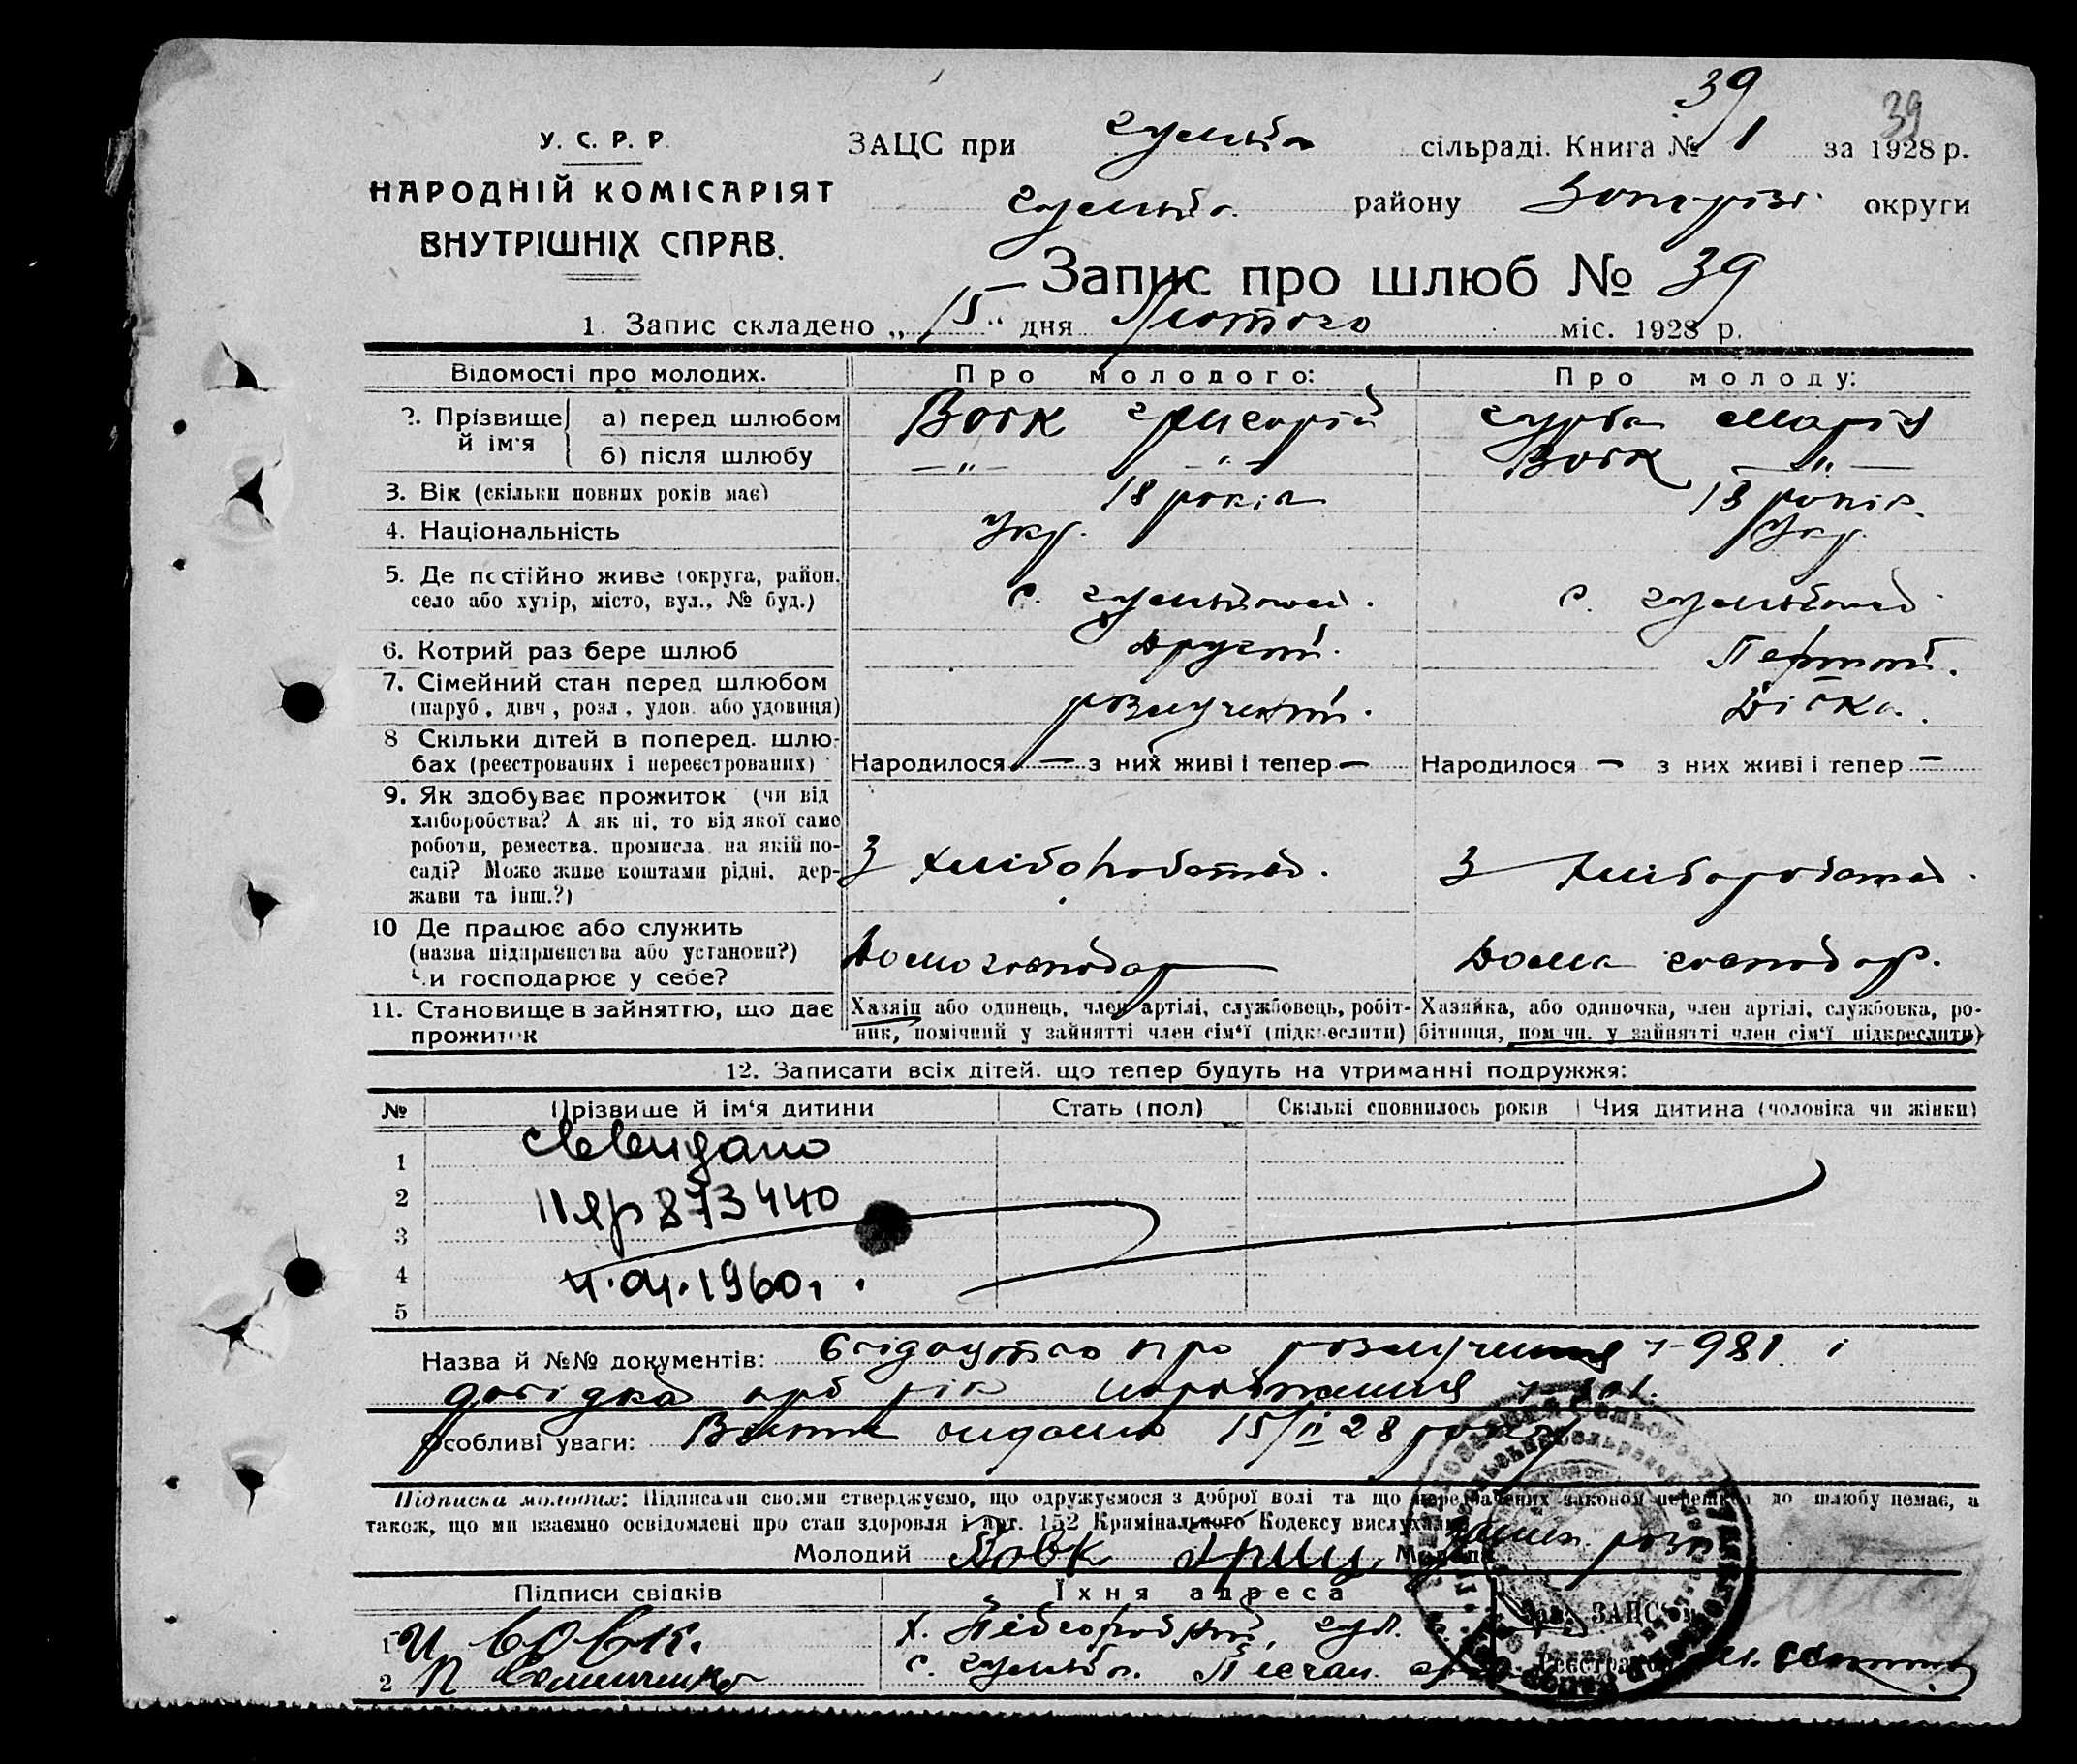 39
39
У. С. Р. Р.
НАРОДНІЙ КОМІСАРІЯТ
ВНУТРІШНІХ СПРАВ.
ЗАЦС при Гуляйп сільраді. Книга № 1 за 1928 р.
Гуляйп. району Запоріз. округи
Запис про шлюб № 39
1. Запис складено „15“ дня Лютого міс. 1928 р.
Відомості про молодих. Про молодого: Про молоду:
2. Прізвище й ім'я
а) перед шлюбом Вовк Григорій Гурба Марія
б) після шлюбу —„— —„— Вовк —„—
3. Вік (скільки повних років має) 18 років 18 років.
4. Національність Укр. Укр.
5. Де постійно живе (округа, район, село або хутір, місто, вул., № буд.) с. Гуляйполе. с. Гуляйполе
6. Котрий раз бере шлюб Другий. Перший.
7. Сімейний стан перед шлюбом
(паруб., дівч., розл., удов. або удовиця) розлучений. Дівка.
8 Скільки дітей в поперед. шлюбах (реєстрованих і нереєстрованих) Народилося — з них живі і тепер — Народилося — з них живі і тепер —
9. Як здобуває прожиток (чи від хліборобства? А як ні, то від якої саме роботи, ремества, промисла, на якій посаді? Може живе коштами рідні, держави та інш.?) З хліборобства. З хліборобства.
10 Де працює або служить
(назва підприємства або установи?)
Чи господарює у себе? Дома господар Дома господар.
11. Становище в зайняттю, що дає прожиток
Хазяїн або одинець, член артілі, службовець, робітник, помічний у зайнятті член сім'ї (підкреслити)
Хазяйка, або одиночка, член артілі, службовка, робітниця, помічн. у зайнятті член сім'ї підкреслити)
12. Записати всіх дітей, що тепер будуть на утриманні подружжя:
№ Прізвище й ім'я дитини Стать (пол) Скількі сповнилось років Чия дитина (чоловіка чи жінки)
1
2 873440
3
4 4.04.1960г.
5
Назва й №№ документів: Свідоцтво про розлучення 981 і
довідка про рік народження
Особливі уваги: видано 15/II 28 року
Підписка молодих: Підписами своїми стверджуємо, що одружуємося з доброї волі та що передбачених законом перешкод до шлюбу немає, а
також, що ми взаємно освідомлені про стан здоровля і арт. 152 Кримінального Кодексу вислухали
Молодий Вовк Гриц Молода
Підписи свідків Їхня адреса
Зав. ЗАЦС'ом
1 И Вовк. х.
Реєстратор
2 П с. Гуляйп.